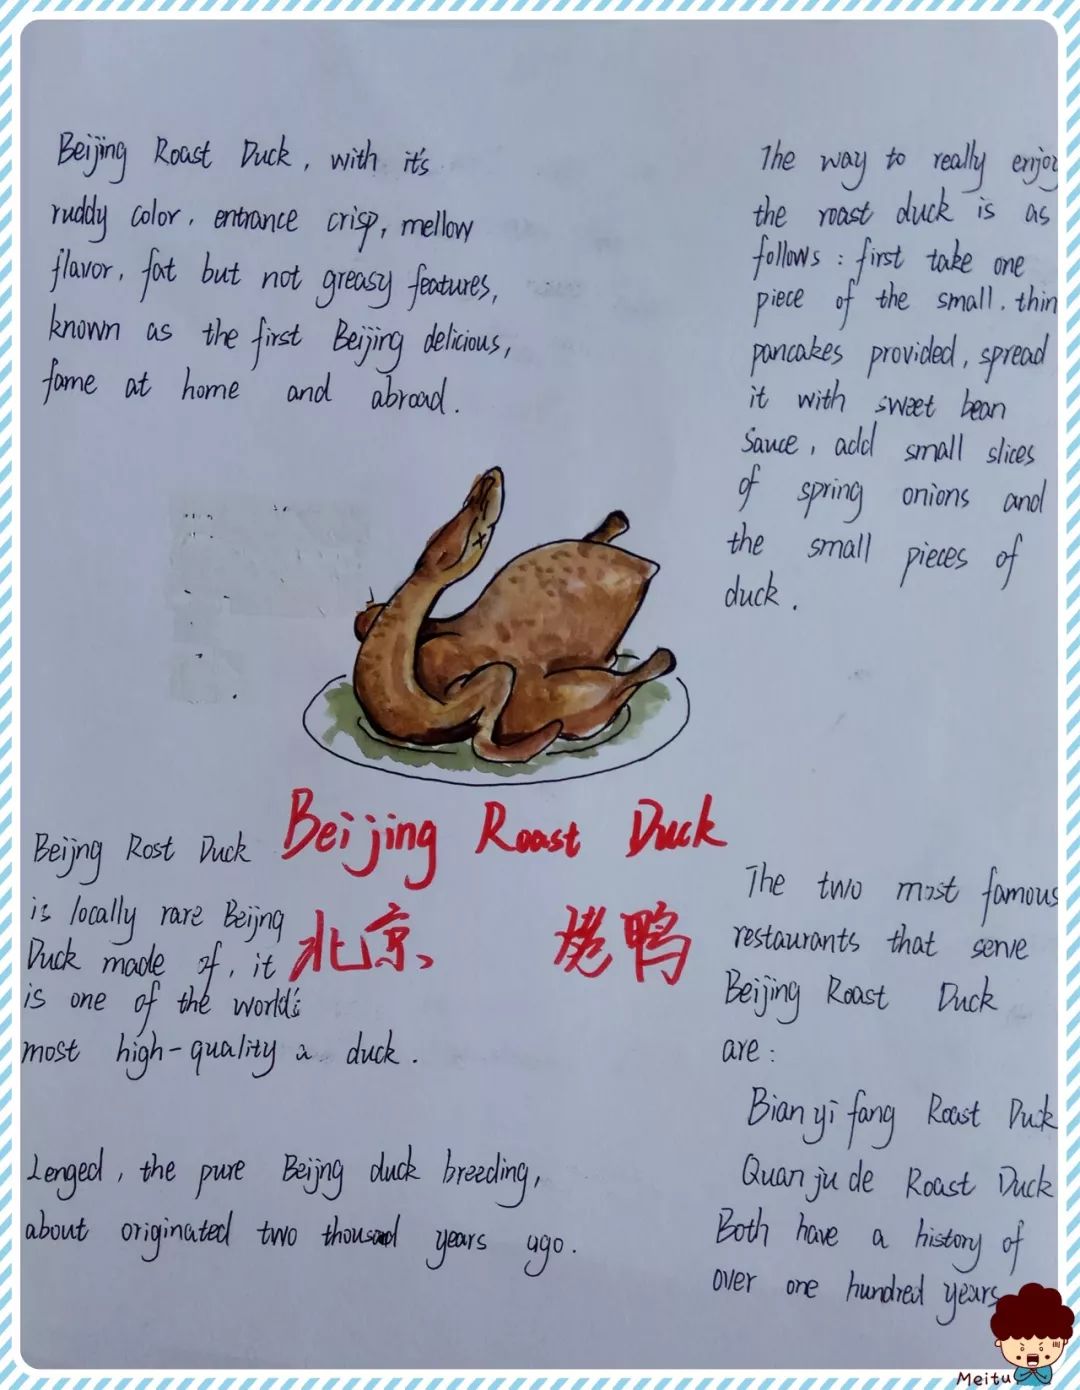 Beijing Roast Duck, with it's
ruddy color, entrance crisp, mellow
flavor, fat but not greasy features,
known as the first Beijing delicious,
fame at home and abroad.
The way to really enjoy
the roast duck is as
follows : first take one
piece of the small. thin
pancakes provided, spread
it with sweet bean
Sauce, add small slices
of spring onions and
the small pieces of
duck.
Beijing Roast Duck
北京 烤鸭
Beijng Rost Duck
is locally rare Beijng
Duck made of, it
is one of the world's
most high-quality a duck.
Lenged, the pure Beijng duck breeding,
about originated two thousand years ago.
The two most famous
restaurants that serve
Beijing Roast Duck
are :
Bian yi fang Roast Duck
Quan ju de Roast Duck
Both have a history of
over one hundred years
Meitu